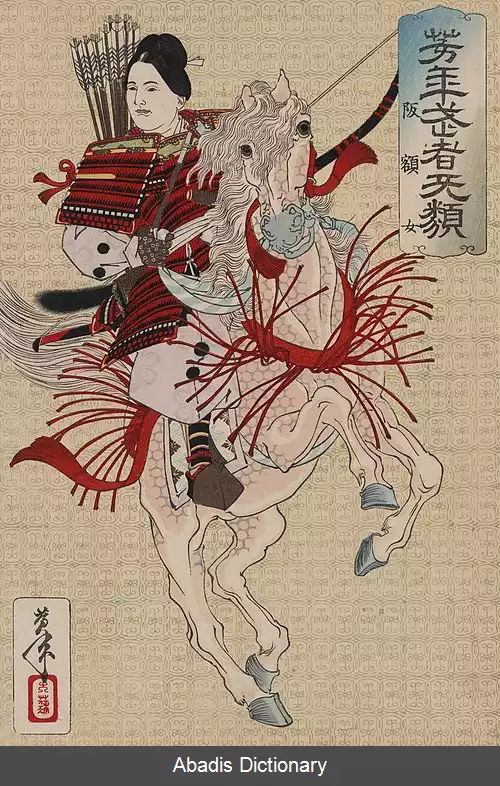 芳年武者无類
阪額女
芳年
Abadis Dictionary